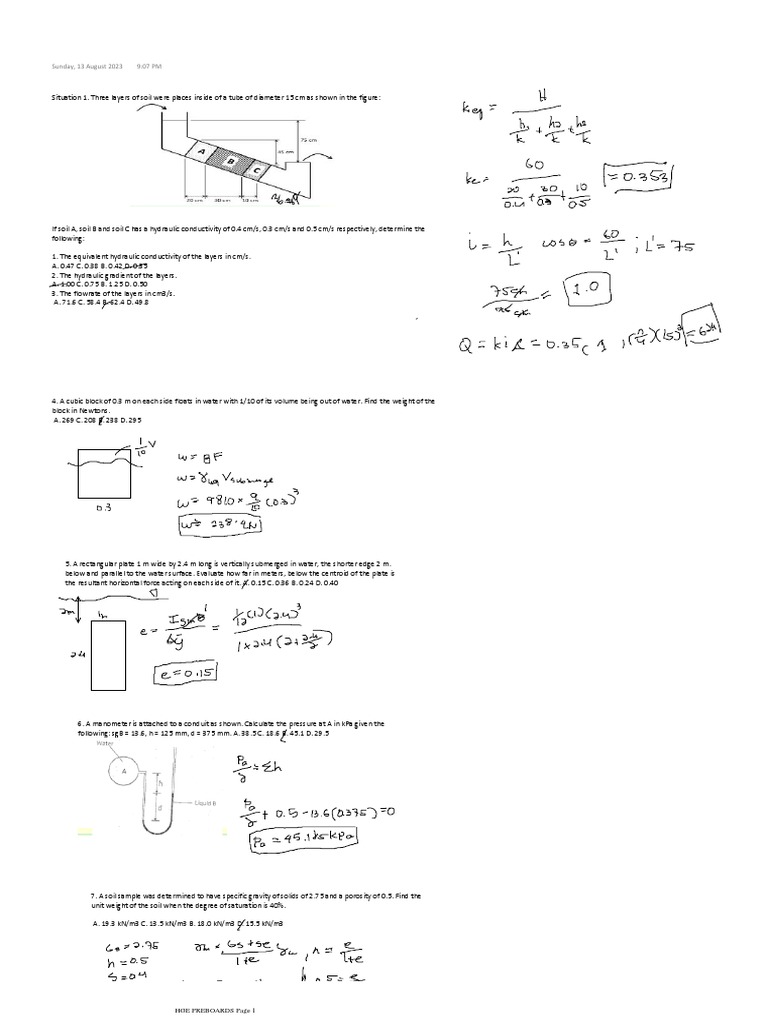 Sunday, 13 August 2023 9:07 PM
Situation 1. Three layers of soil were places inside of a tube of diameter 15 cm as shown in the figure:
75 cm
45 cm
A
B
C
20 cm 30 cm 10 cm
If soil A, soil B and soil C has a hydraulic conductivity of 0.4 cm/s, 0.3 cm/s and 0.5 cm/s respectively, determine the
following:
1. The equivalent hydraulic conductivity of the layers in cm/s.
A. 0.47 C. 0.38 B. 0.42 D. 0.35
2. The hydraulic gradient of the layers.
A. 1.00 C. 0.75 B. 1.25 D. 0.50
3. The flowrate of the layers in cm3/s.
A. 71.6 C. 58.4 B. 62.4 D. 49.8
keq = H
h1/k + h2/k + h3/k
ke = 60
20/0.4 + 30/0.3 + 10/0.5
= 0.353
i = h/L' cosθ = 60/L' ; L' = 75
75cm = 1.0
Q = kiA = 0.35( 1
4. A cubic block of 0.3 m on each side floats in water with 1/10 of its volume being out of water. Find the weight of the
block in Newtons.
A. 269 C. 208 B. 238 D. 295
1/10 V
0.3
W = BF
W = γw Vsubmerge
W = 9810 × 9/10 (0.3)^3
W = 238.4N
5. A rectangular plate 1 m wide by 2.4 m long is vertically submerged in water, the shorter edge 2 m.
below and parallel to the water surface. Evaluate how far in meters, below the centroid of the plate is
the resultant horizontal force acting on each side of it. A. 0.15 C. 0.36 B. 0.24 D. 0.40
2m
1m
2.4
e = I sinθ / Aȳ = 1/12 (1)(2.4)^3
1 × 2.4 (2 + 2.4/2)
e = 0.15
6. A manometer is attached to a conduit as shown. Calculate the pressure at A in kPa given the
following: sg B = 13.6, h = 125 mm, d = 375 mm. A. 38.5 C. 18.6 B. 45.1 D. 29.5
Water
A
h
d
Liquid B
Pa/γ = Σh
Pa/γ + 0.5 - 13.6(0.375) = 0
Pa = 45.125 kPa
7. A soil sample was determined to have specific gravity of solids of 2.75 and a porosity of 0.5. Find the
unit weight of the soil when the degree of saturation is 40%.
A. 19.3 kN/m3 C. 13.5 kN/m3 B. 18.0 kN/m3 D. 15.5 kN/m3
Gs = 2.75
n = 0.5
S = 0.4
γm = Gs + Se / 1+e γw , n = e / 1+e
HGE PREBOARDS Page 1